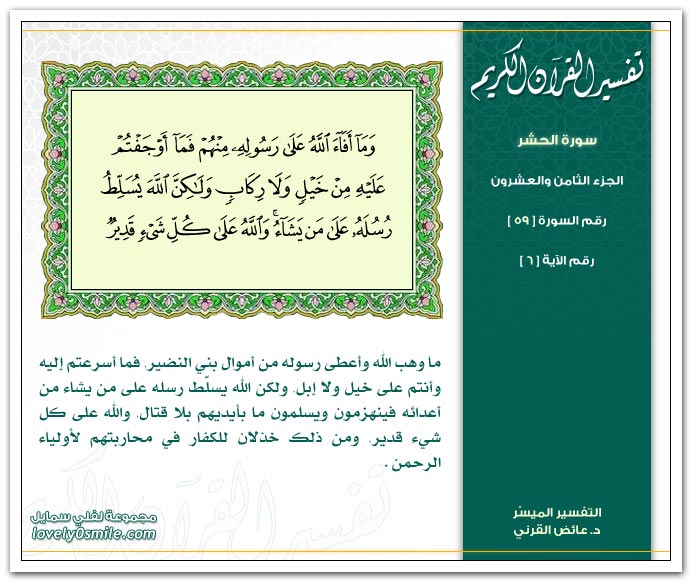 تفسير القرآن الكريم
سورة الحشر
الجزء الثامن والعشرون
رقم السورة [ ٥٩ ]
رقم الآية [ ٦ ]
وَمَآ أَفَآءَ ٱللَّهُ عَلَىٰ رَسُولِهِۦ مِنْهُمْ فَمَآ أَوْجَفْتُمْ
عَلَيْهِ مِنْ خَيْلٍ وَلَا رِكَابٍ وَلَٰكِنَّ ٱللَّهَ يُسَلِّطُ
رُسُلَهُۥ عَلَىٰ مَن يَشَآءُ ۚ وَٱللَّهُ عَلَىٰ كُلِّ شَىْءٍ قَدِيرٌ
ما وهب الله وأعطى رسوله من أموال بني النضير، فما أسرعتم إليه
وأنتم على خيل ولا إبل، ولكن الله يسلّط رسله على من يشاء من
أعدائه فينهزمون ويسلمون ما بأيديهم بلا قتال، والله على كل
شيء قدير، ومن ذلك خذلان للكفار في محاربتهم لأولياء
الرحمن .
التفسير الميسّر
د. عائض القرني
مجموعة لفلي سمايل
lovely0smile.com
تفسير القرآن الكريم